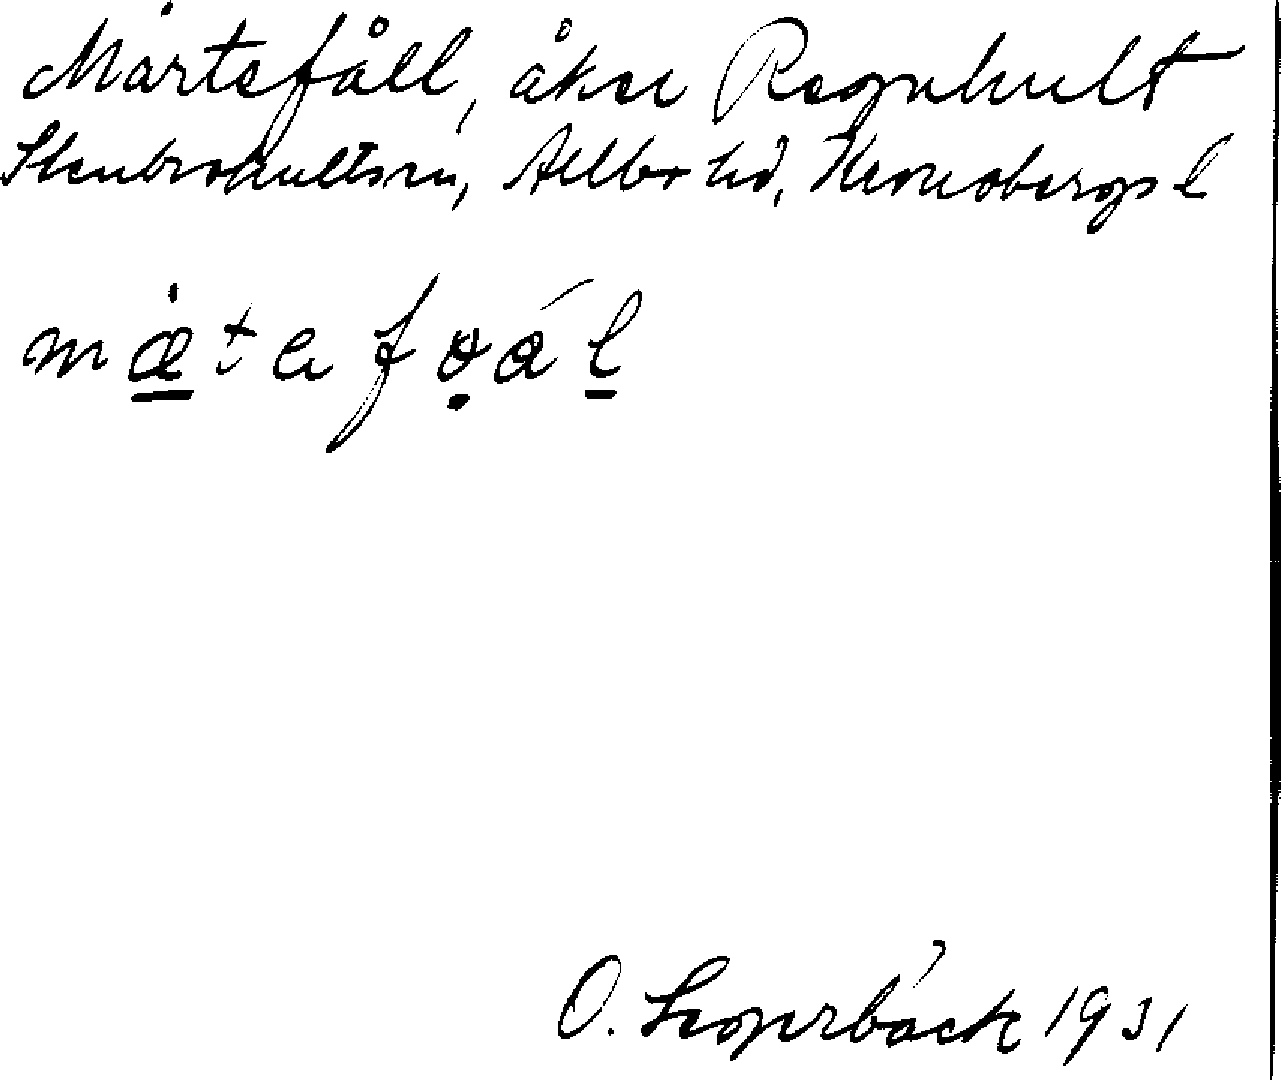 Mårtefåll, åker Regnhult
Stenbrohultssn, Allbo hd, Kronobergs l
O. Loperbäck 1931